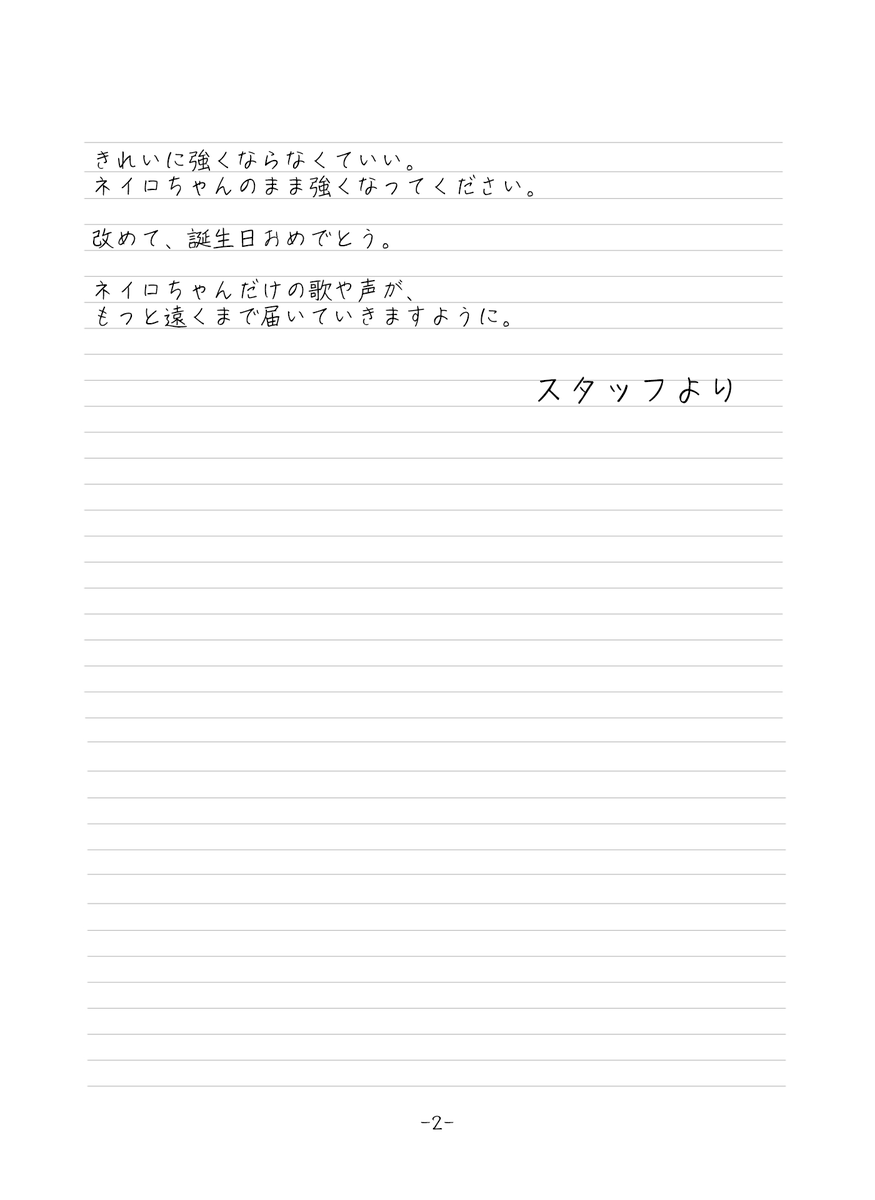 きれいに強くならなくていい。
ネイロちゃんのまま強くなってください。
改めて、誕生日おめでとう。
ネイロちゃんだけの歌や声が、
もっと遠くまで届いていきますように。
スタッフより
-2-